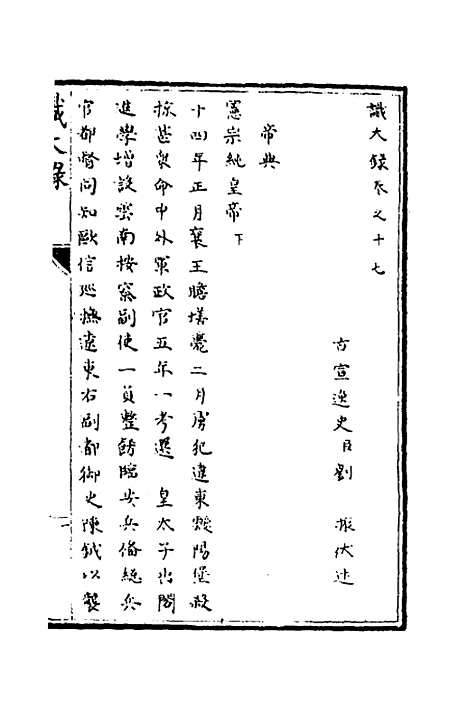 識大録卷之十七
古宣逸史臣劉 振伏述
帝典
憲宗純皇帝下
十四年正月襄王瞻墡薨二月虜犯遼東靉陽堡殺
掠甚衆命中外軍政官五年一考選 皇太子出閣
進學增設雲南按察副使一員整飭臨安兵備總兵
官都督同知歐信巡撫遼東右副都御史陳鉞以襲
識大錄